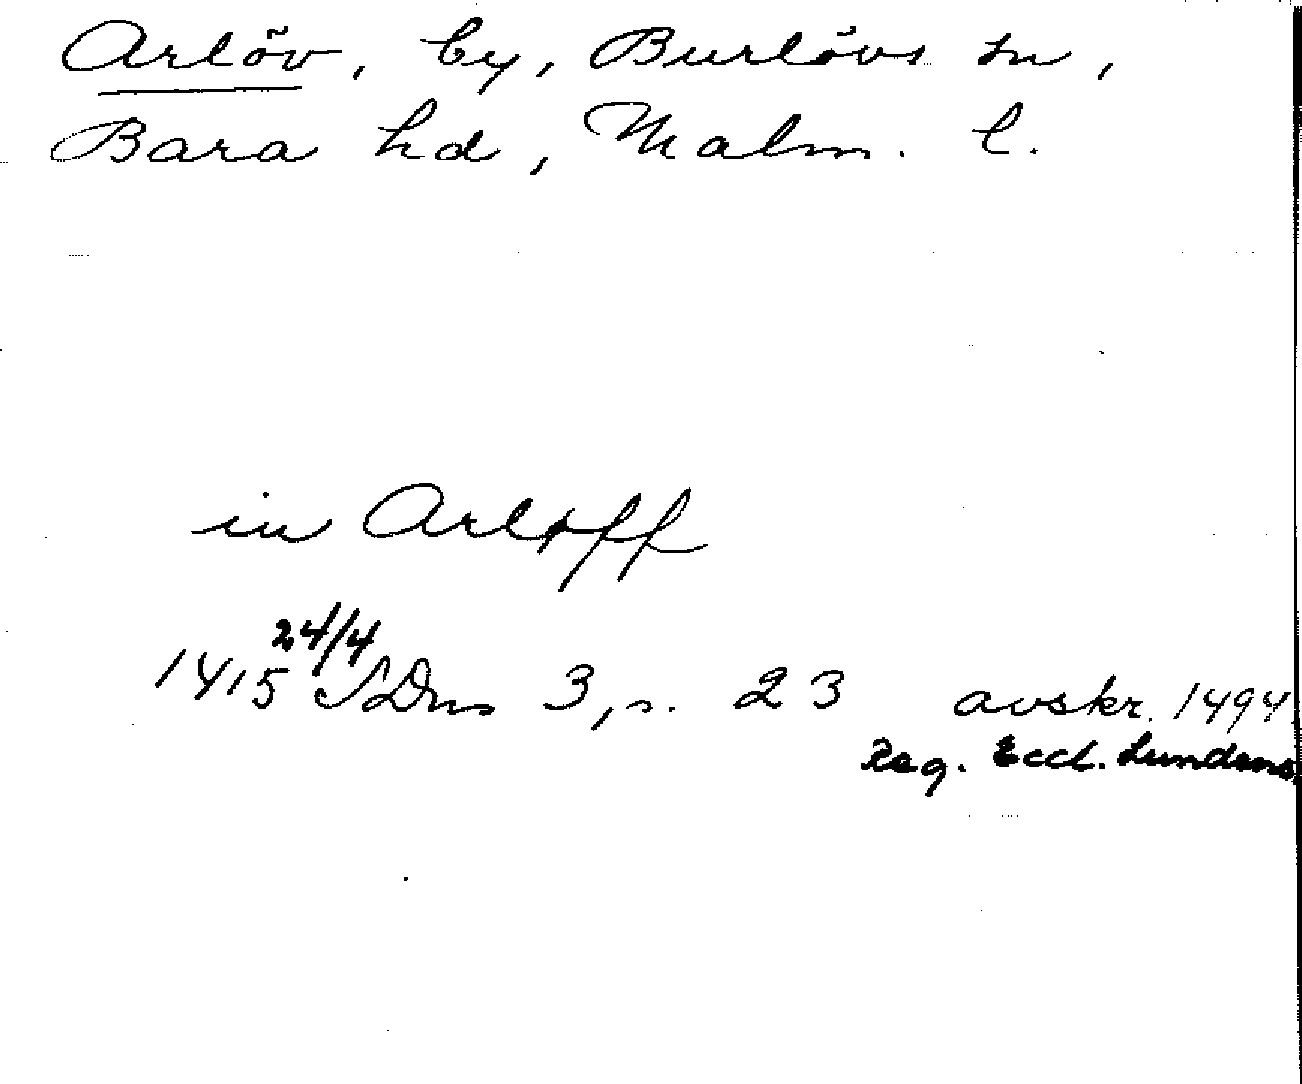 Arlöv, by, Burlövs sn,
Bara hd, Malm. l.
in Arløff
1415 24/4 SDns 3, s. 23 avskr. 1494
Reg. Eccl. Lundens.